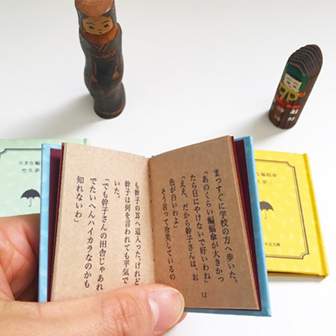 まっすぐに学校の方へ歩いた。
「あのくらい蝙蝠傘が大きかっ
たら日にやけないで好いわね」
「まあ、だから幹子さんは、お
色が白いわよ」
そう言って冷笑しているの
12
も幹子の耳へ這入った。けれど
幹子は何を言われても平気で
いた。
「でも幹子さんの田舎じゃあれ
でたいへんハイカラなのかも
知れないわ」
大きな蝙
竹久夢